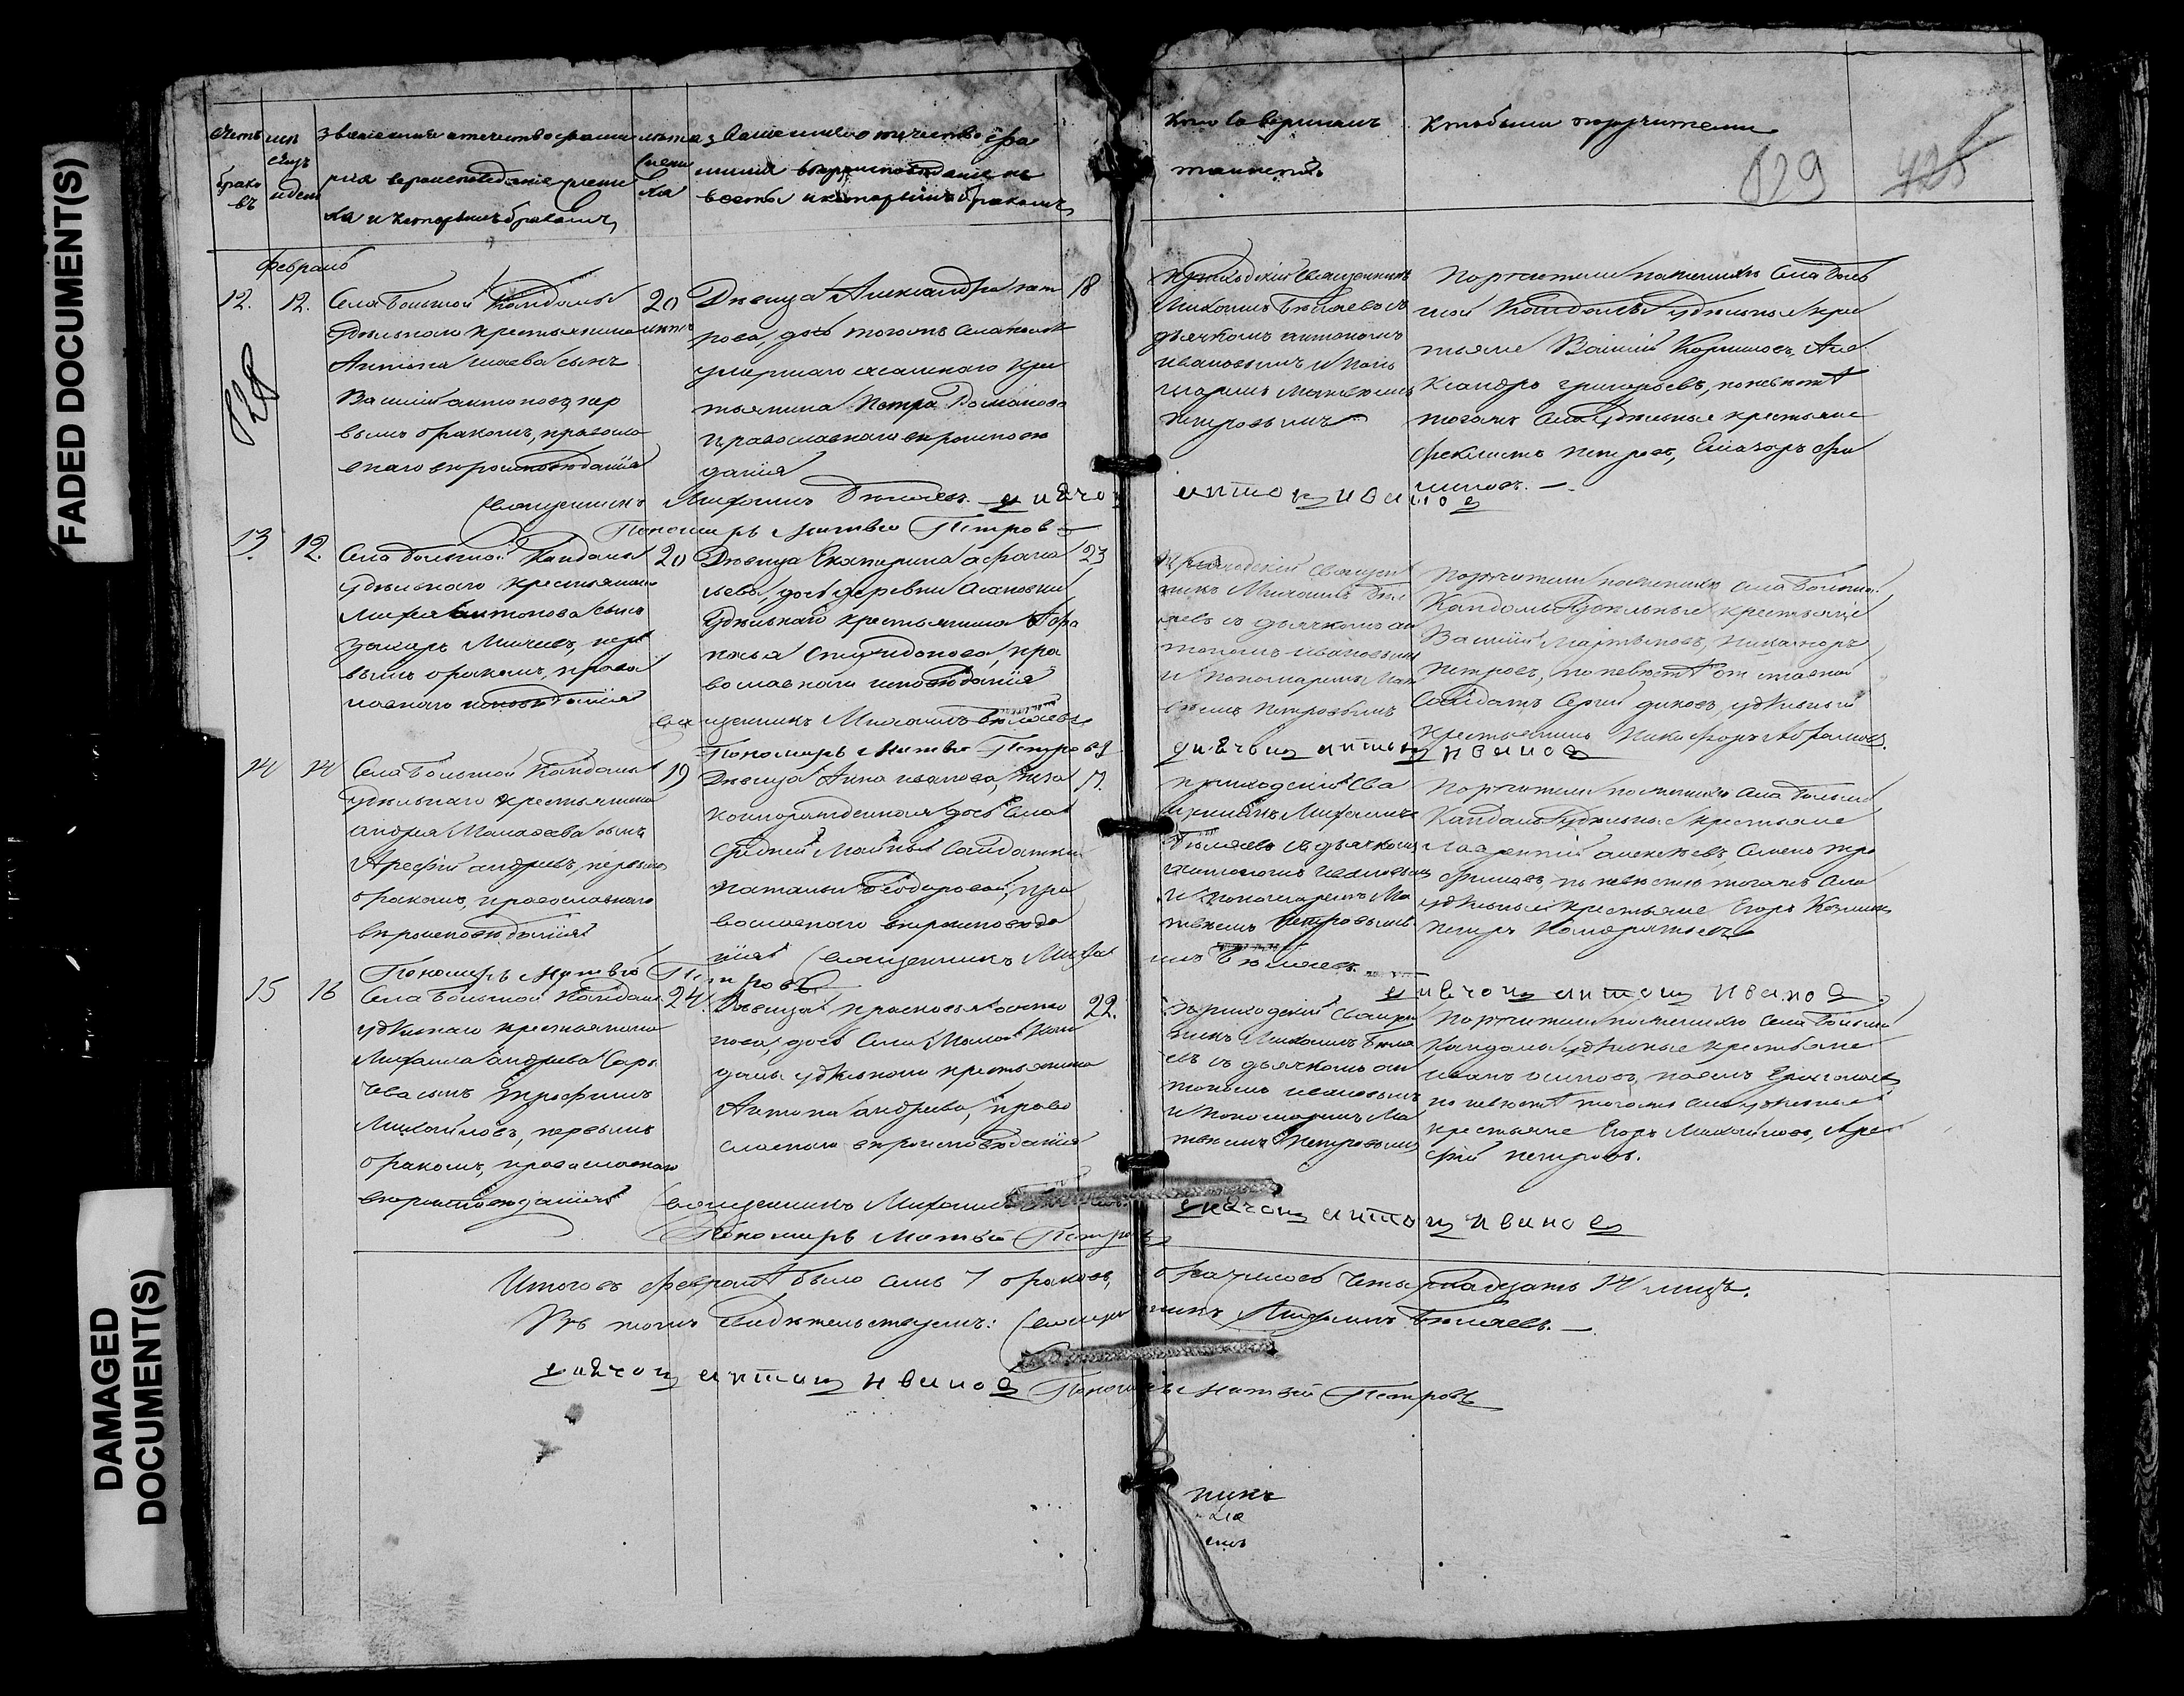 FADED DOCUMENT(S)
DAMAGED
DOCUMENT(S)
счетъ
брако
въ
мѣ
сяцъ
и день
званiе имя отчество фами
лiя вероисповѣданiе жени
ха и которымъ бракомъ
лѣта
жени
ха
званiе имя отчество фа
милiя вѣроисповѣданiе не
весты и которымъ бракомъ
Кто совершалъ
таинство
Кто были поручители
829
425
828
Февраль
12. 12.
Села Большой Кандалы
удѣльнаго крестьянина
Антипа сынъ
Василiй Антиповъ, пер
вымъ бракомъ, правосла
внаго вѣроисповѣданiя
20
лѣтъ
Дѣвица Александра Пет
рова, дочь тогожъ села
умершаго крес
тьянина Петра
православнаго вѣроисповѣ
данiя
18
Приходскiй Священникъ
Михаилъ Бѣляевъ съ
дьячкомъ Антономъ
Ивановымъ и поно
маремъ Матвеемъ
Петровымъ
Поручители по женихѣ Села Боль
шой Кандалы удѣльные крес
тьяне Василiй Але
ксандръ Григорьевъ, по невѣстѣ
тогожъ Села удѣльные крестьяне
Петровъ, Елизаръ Фи
липовъ.
Священникъ Михаилъ Бѣляевъ. дьячок Антон Иванов
Пономарь Матвей Петров
13. 12.
Села Большой Кандалы
удѣльнаго крестьянина
Антонова сынъ
Захаръ пер
вымъ бракомъ, право
славнаго исповѣданiя
20
Дѣвица Екатерина Афана
сьева, дочь деревни
удѣльнаго крестьянина Афа
насья Спиридонова, пра
вославнаго исповѣданiя
23
Приходскiй Священ
никъ Михаилъ Бѣл
яевъ съ дьячкомъ Ан
тономъ Ивановымъ
и пономаремъ Мат
вѣемъ Петровымъ
Поручители по женихѣ Села Большой
Кандалы удѣльные крестьяне
Василiй Мартыновъ, Никаноръ
Петровъ, по невѣстѣ отставной
Солдатъ Сергѣй удѣльный
крестьянинъ Никифоръ Абрамовъ.
Священникъ Михаилъ Бѣляевъ
Пономарь Матвей Петровъ дьячок Антон Иванов
14 14
Села Большой Кандалы
удѣльнаго крестьянина
Андрея сынъ
Арефiй Андреевъ, первымъ
бракомъ, православнаго
вѣроисповѣданiя
19
Дѣвица Анна Иванова, неза
коннорожденная дочь Села
Средней Майны Солдатки
Натальи Ѳеодоровой, пра
вославнаго вѣроисповѣда
нiя
17.
Приходскiй Свя
щенникъ Михаилъ
Бѣляевъ съ дьячкомъ
Антономъ Ивановымъ
и пономаремъ Ма
твеемъ Петровымъ
Поручители по женихѣ Села Большой
Кандалы удѣльные крестьяне
Лаврентiй Алексѣевъ, Семенъ Тро
фимовъ, по невѣстѣ тогожъ Села
удѣльные крестьяне Егоръ Козминъ
Петръ Кондратьевъ
Священникъ Михаилъ Бѣляевъ.
Пономарь Матвей Петровъ
дьячок Антон Иванов
15 16
Села Большой Кандалы
удѣльнаго крестьянина
Михаила Андреева
сынъ Трофимъ
Михайловъ, первымъ
бракомъ, православнаго
вѣроисповѣданiя
24.
Дѣвица Прасковья Анти
пова, дочь Села Малой Кан
далы удѣльнаго крестьянина
Антипа Андреева, право
славнаго вѣроисповѣданiя
22.
Приходскiй Священ
никъ Михаилъ Бѣля
евъ съ дьячкомъ Ан
тономъ Ивановымъ
и пономаремъ Ма
твеемъ Петровымъ
Поручители по женихѣ Села Большой
Кандалы удѣльные крестьяне
Иванъ Осиповъ, Павелъ
по невѣстѣ тогожъ села удѣльные
крестьяне Егоръ Михайловъ, Аре
фiй Петровъ.
Священникъ Михаилъ дьячок Антон Иванов
Пономарь Матвей Петровъ
Итого въ февралѣ было семь 7 браковъ, брачилось четырнадцать 14 лицъ.
Въ томъ свидѣтельствуемъ: Священникъ Михаилъ Бѣляевъ.
дьячок Антон Иванов Пономарь Матвей Петровъ
никъ